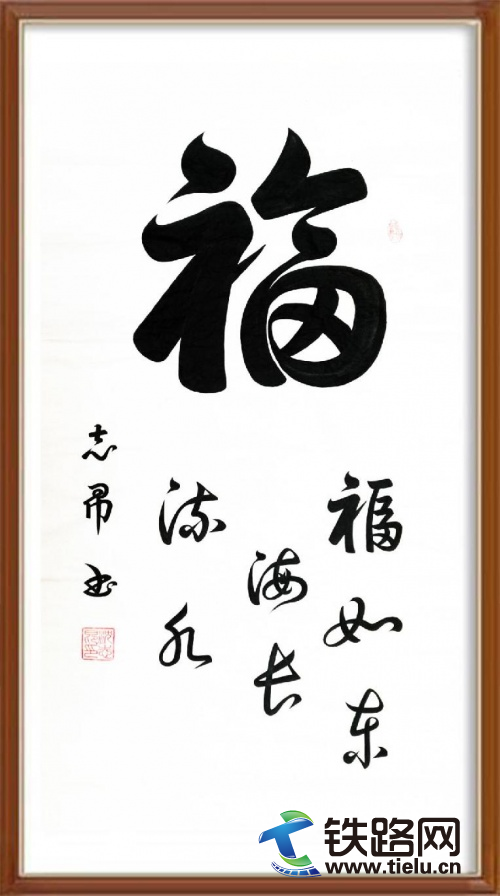 福
福如东
海长
流水
志 书
铁路网
www.tielu.cn